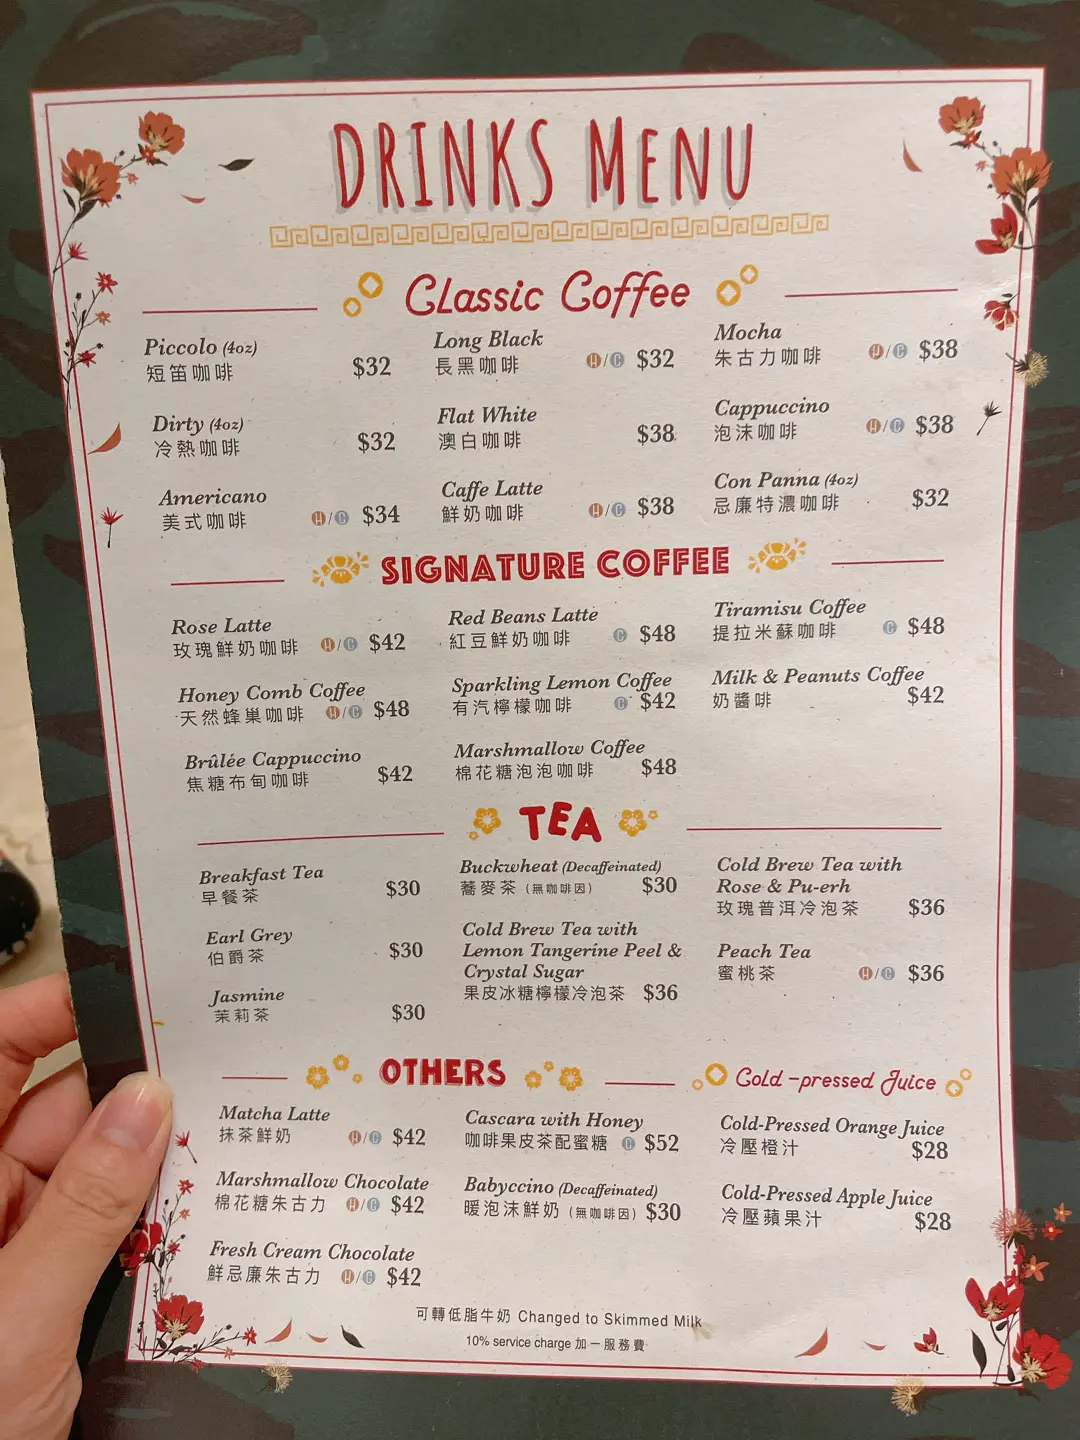 DRINKS MENU
Classic Coffee
Piccolo (4oz)
短笛咖啡 $32
Long Black
長黑咖啡 H/C $32
Mocha
朱古力咖啡 H/C $38
Dirty (4oz)
冷熱咖啡 $32
Flat White
澳白咖啡 $38
Cappuccino
泡沫咖啡 H/C $38
Americano
美式咖啡 H/C $34
Caffe Latte
鮮奶咖啡 H/C $38
Con Panna (4oz)
忌廉特濃咖啡 $32
SIGNATURE COFFEE
Rose Latte
玫瑰鮮奶咖啡 H/C $42
Red Beans Latte
紅豆鮮奶咖啡 C $48
Tiramisu Coffee
提拉米蘇咖啡 C $48
Honey Comb Coffee
天然蜂巢咖啡 H/C $48
Sparkling Lemon Coffee
有汽檸檬咖啡 C $42
Milk & Peanuts Coffee
奶醬啡 $42
Brûlée Cappuccino
焦糖布甸咖啡 $42
Marshmallow Coffee
棉花糖泡泡咖啡 $48
TEA
Breakfast Tea
早餐茶 $30
Buckwheat (Decaffeinated)
蕎麥茶（無咖啡因） $30
Cold Brew Tea with
Rose & Pu-erh
玫瑰普洱冷泡茶 $36
Earl Grey
伯爵茶 $30
Cold Brew Tea with
Lemon Tangerine Peel &
Crystal Sugar
果皮冰糖檸檬冷泡茶 $36
Peach Tea
蜜桃茶 H/C $36
Jasmine
茉莉茶 $30
OTHERS
Matcha Latte
抹茶鮮奶 H/C $42
Cascara with Honey
咖啡果皮茶配蜜糖 C $52
Marshmallow Chocolate
棉花糖朱古力 H/C $42
Babyccino (Decaffeinated)
暖泡沫鮮奶（無咖啡因） $30
Fresh Cream Chocolate
鮮忌廉朱古力 H/C $42
Cold-pressed Juice
Cold-Pressed Orange Juice
冷壓橙汁 $28
Cold-Pressed Apple Juice
冷壓蘋果汁 $28
可轉低脂牛奶 Changed to Skimmed Milk
10% service charge 加一服務費